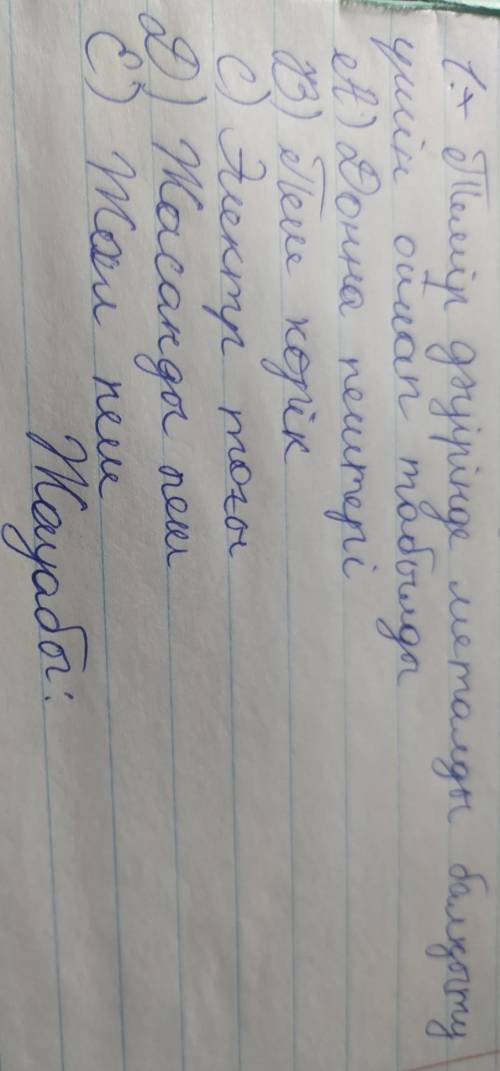 1.* Темір дәуірінде металды балқыту
үшін ойлап табылды
A) Донна пештері
B) Пеш көрік
C) Электр тогы
D) Жасанды пеш
E) Жай пеш
Жауабы: